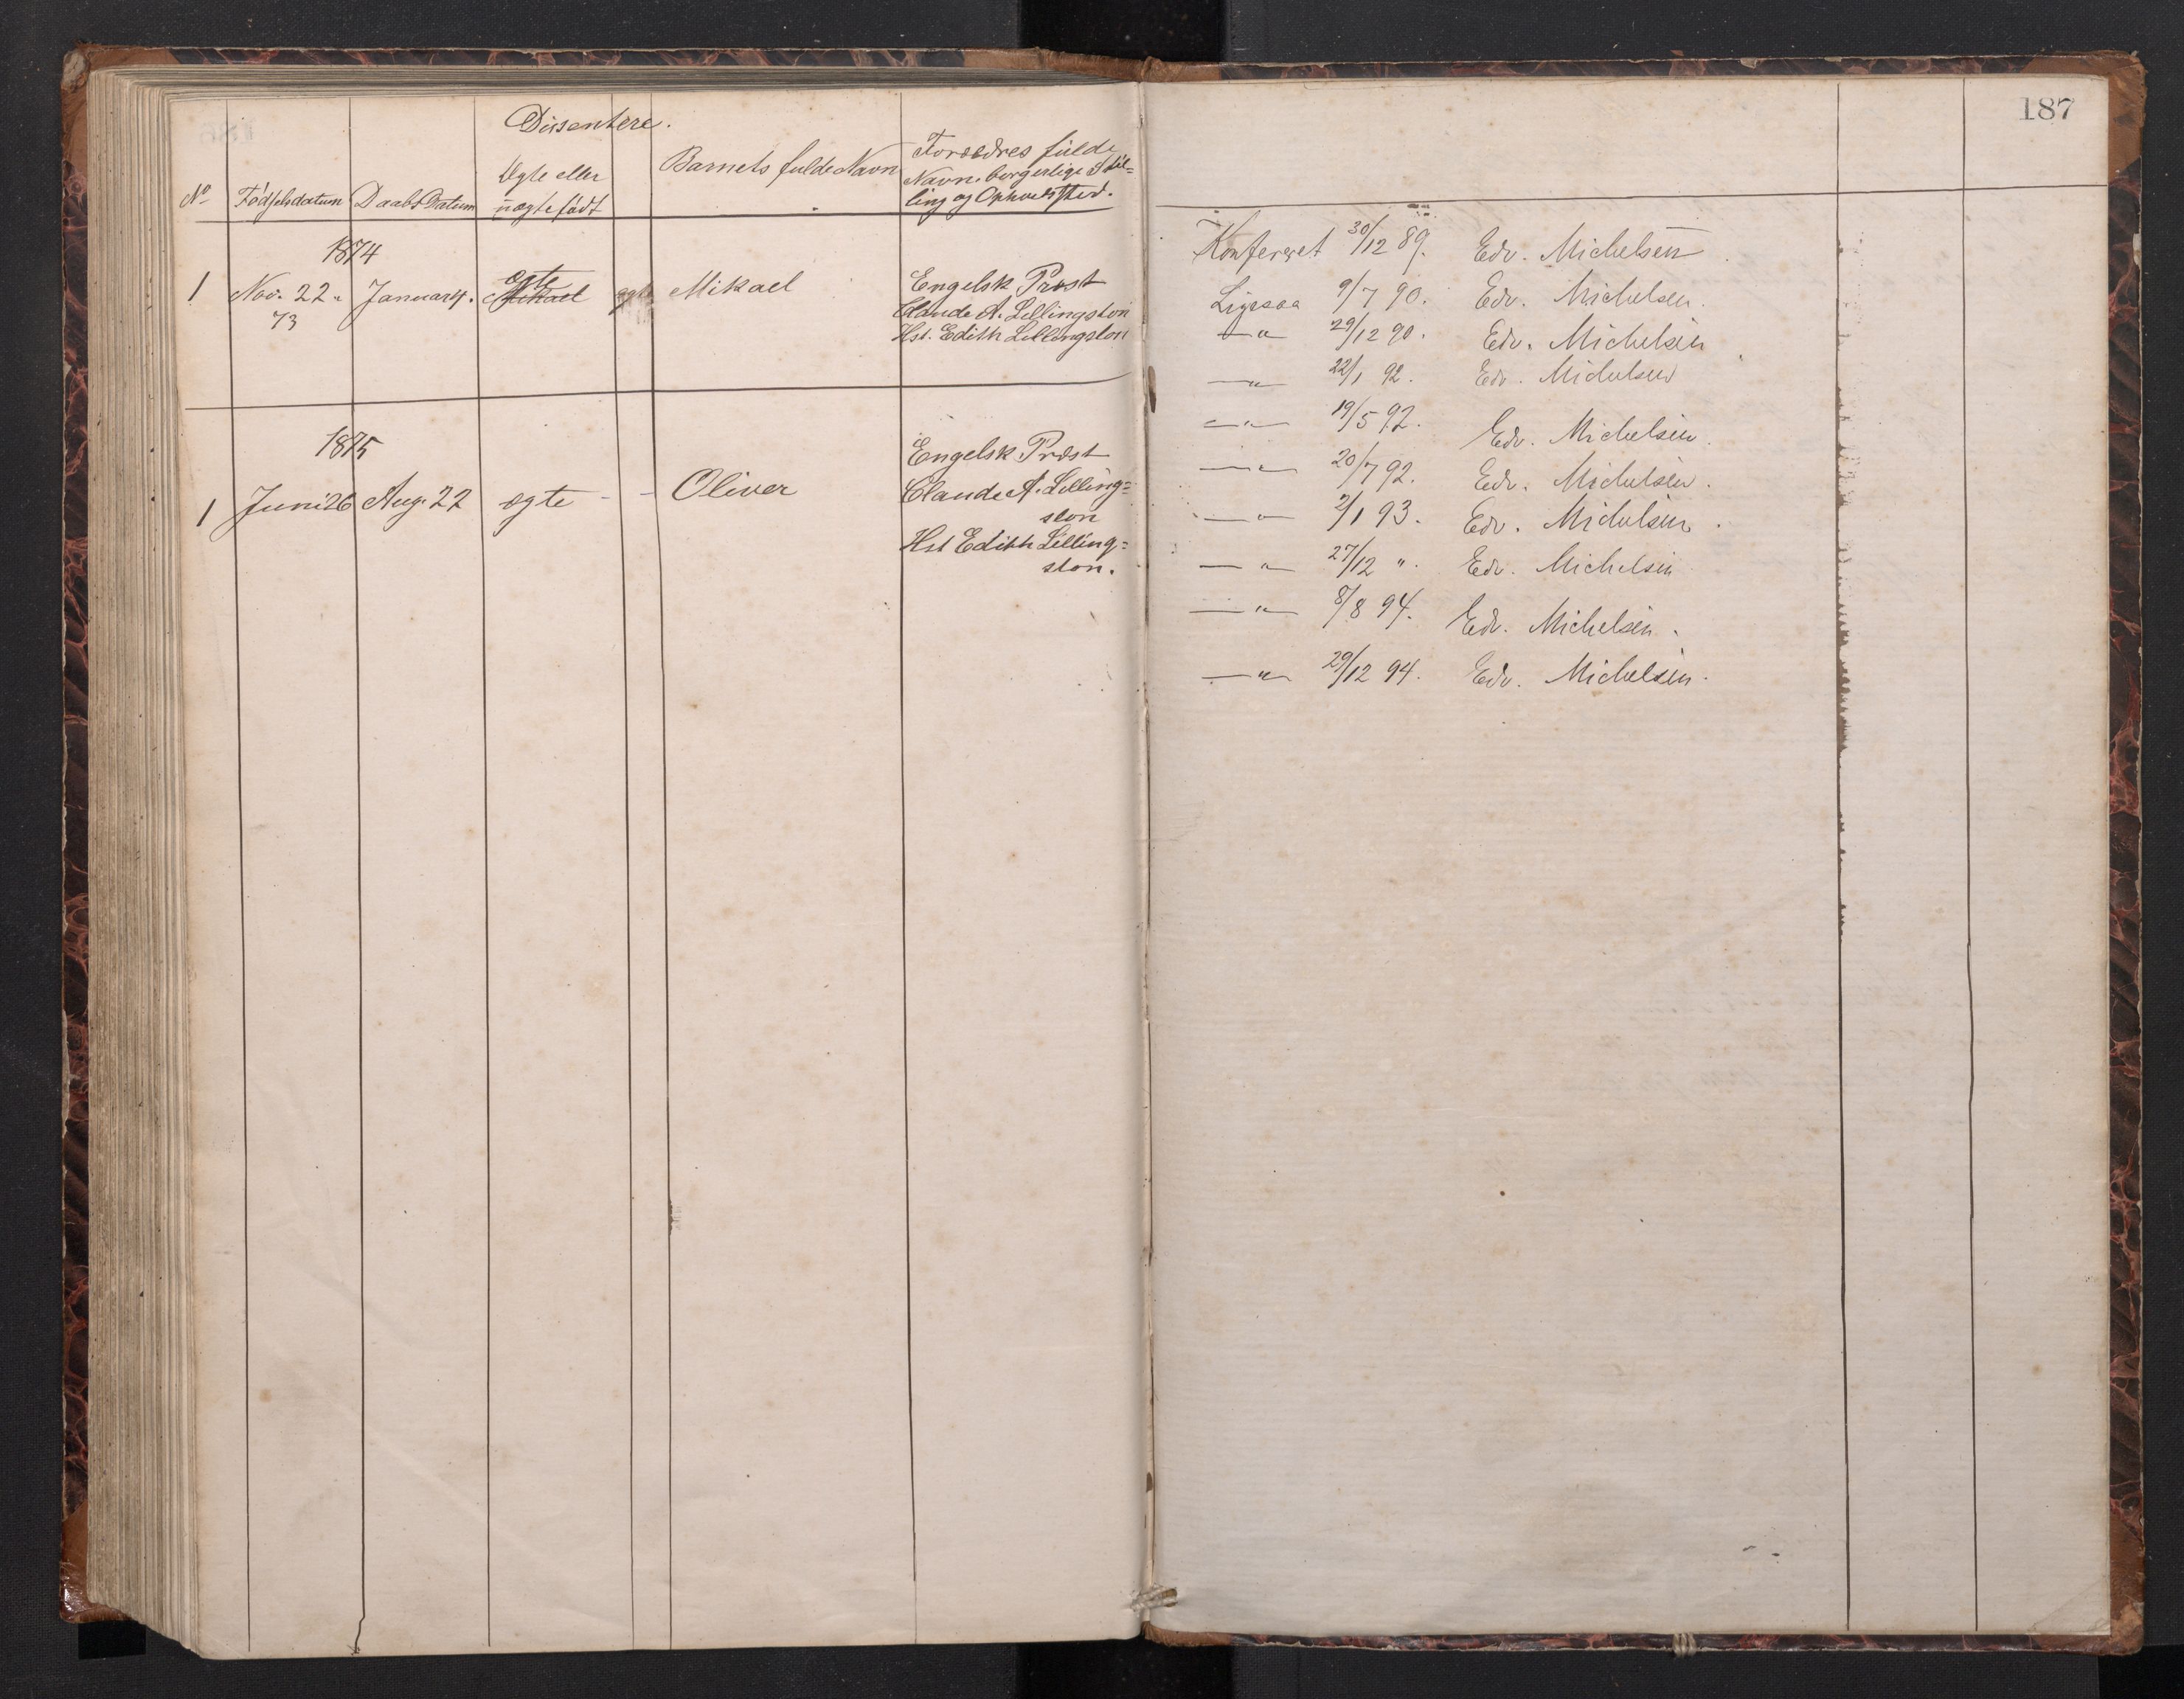 Dissentere.
No
Fødselsdatum
Daabs Datum
Ægte eller
uægte født
Barnets fulde Navn
Forældres fulde
Navn, borgerlige Stil=
ling og Opholdssted.
1874
1 Nov. 22. Januar 4. ægte Mikael ægte Mikael
73
Engelsk Præst
Claude A. Lillingston
Hst. Edith Lillingston
1875
1 Juni 26 Aug. 22 ægte - - Oliver
Engelsk Præst
Claude A. Lilling=
ston
Hst Edith Lilling=
ston.
187
Konfereret 30/12 89. Edv. Michelsen
Ligesaa 9/7 90. Edv. Michelsen.
—"— 29/12 90. Edv. Michelsen
—"— 22/1 92. Edv. Michelsen
—"— 19/5 92. Edv. Michelsen.
—"— 20/7 92. Edv. Michelsen.
—"— 2/1 93. Edv. Michelsen.
—"— 27/12 ". Edv. Michelsen
—"— 8/8 94. Edv. Michelsen.
—"— 29/12 94. Edv. Michelsen.